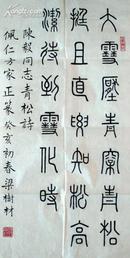 大雪壓青松青松
挺且直要知松高
潔待到雪化時
陳毅同志青松詩
佩仁方家正篆癸亥初春梁樹材